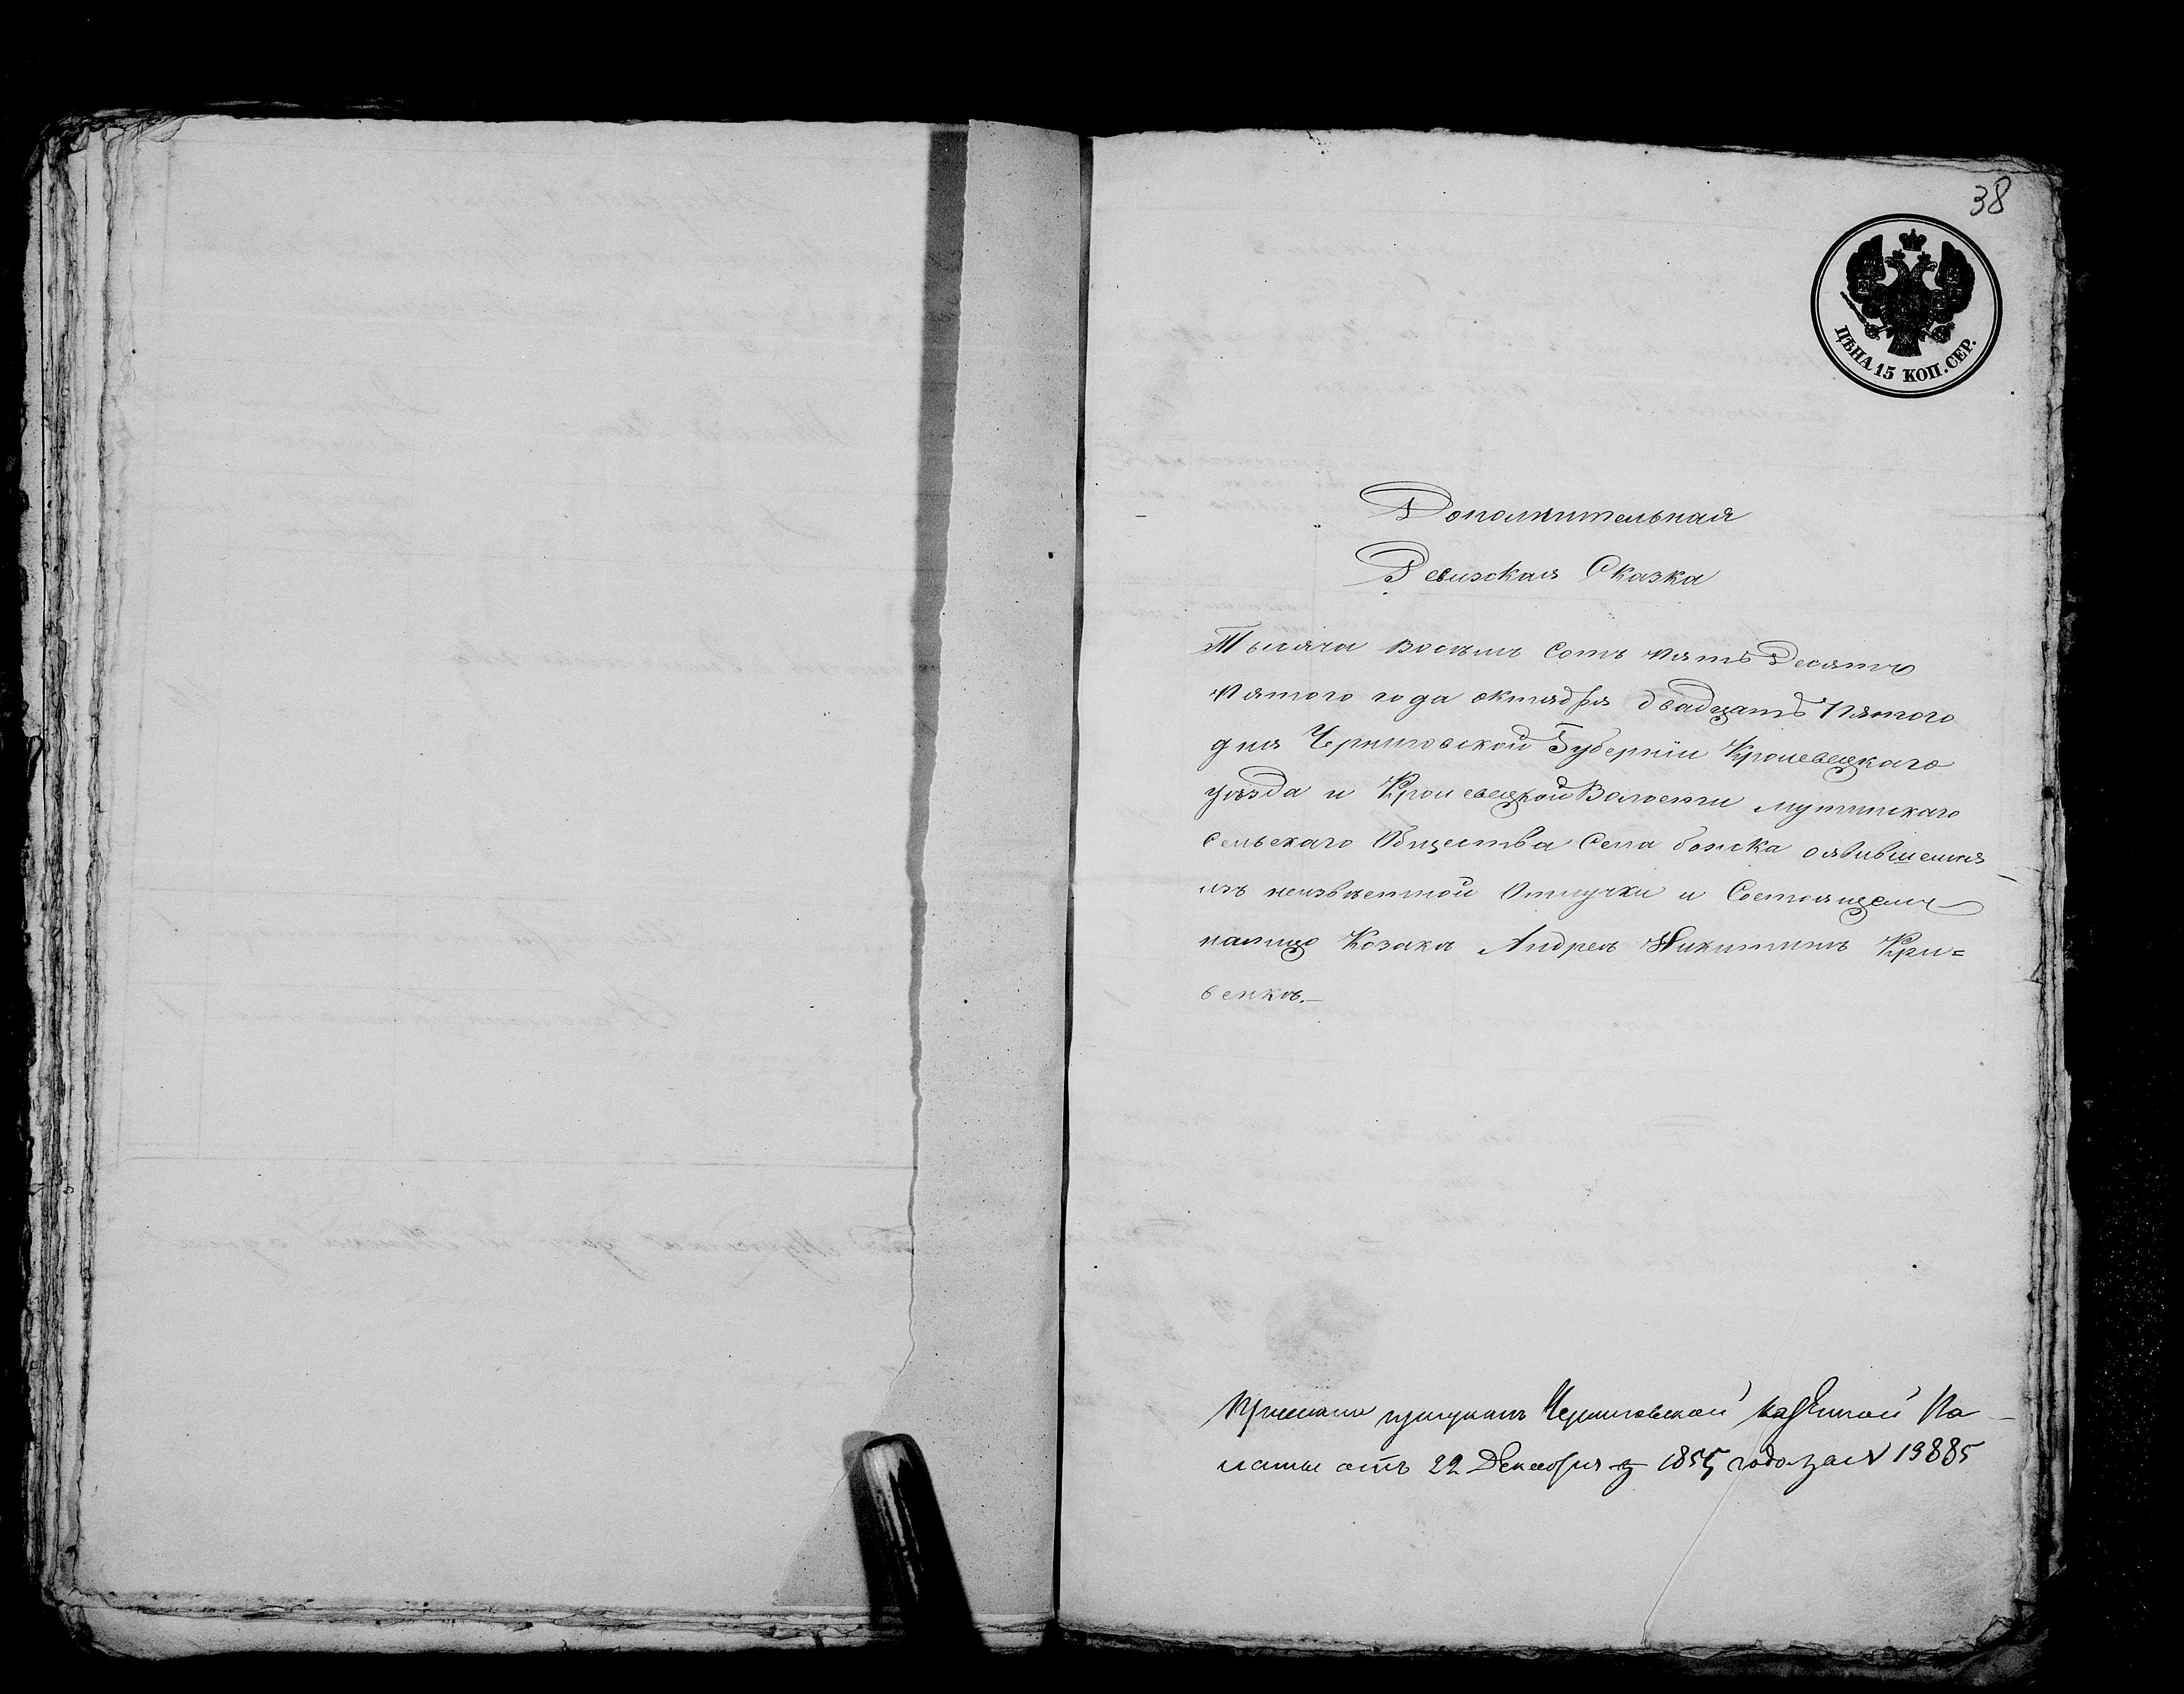 38
ЦѢНА 15 КОП. СЕР.
Дополнительная
Ревизская Сказка
Тысяча восемь сотъ пять Десятъ
пятого года октября двадцать пятого
дня Черниговской Губерніи Кролевецкаго
уѣзда и Кролевецкой Волости Мутинскаго
Сельскаго Общества Села
изъ неизвѣстной Отлучки и Состоящемъ
налицо Козакѣ Андреѣ Никитинѣ Кри=
венкѣ.
Черниговской Казенной Па
латы отъ 22 Декабря 1855 года за № 19885